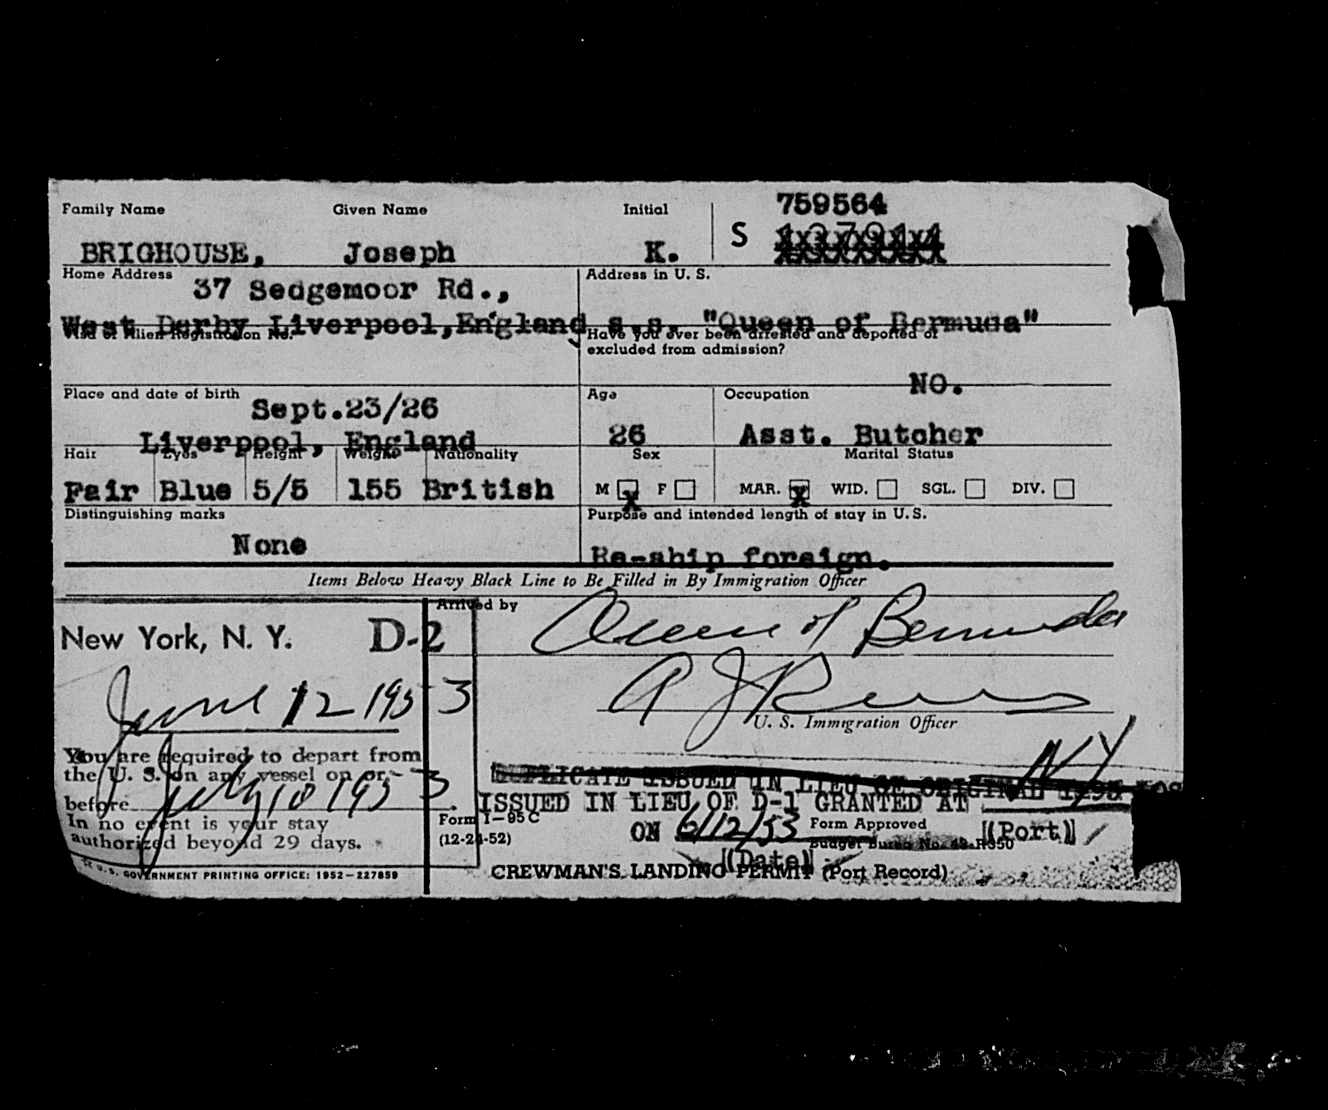 Family Name Given Name Initial 759564
BRIGHOUSE, Joseph K. S
Home Address Address in U. S.
37 Sedgemoor Rd.,
West Derby Liverpool,England s.s. "Queen of Bermuda"
Visa or Alien Registration No. Have you ever been arrested and deported or
excluded from admission?
NO.
Place and date of birth Age Occupation
Sept.23/26
Liverpool, England 26 Asst. Butcher
Hair Eyes Height Weight Nationality Sex Marital Status
Fair Blue 5/5 155 British M x F MAR. x WID. SGL. DIV.
Distinguishing marks Purpose and intended length of stay in U.S.
None Re-ship foreign.
Items Below Heavy Black Line to Be Filled in By Immigration Officer
Arrived by Queen of Bermuda
New York, N. Y. D-2
June 12 1953
U. S. Immigration Officer
You are required to depart from
the U. S. on any vessel on or
before July 10 1953.
In no event is your stay
authorized beyond 29 days.
☆ U.S. GOVERNMENT PRINTING OFFICE: 1952—227859
NY
DUPLICATE ISSUED IN LIEU OF ORIGINAL I-95
ISSUED IN LIEU OF D-1 GRANTED AT
Form I-95C ON 6/12/53 Form Approved (Port)
(12-24-52) (Date) Budget Bureau No. 43-R350
CREWMAN'S LANDING PERMIT (Port Record)